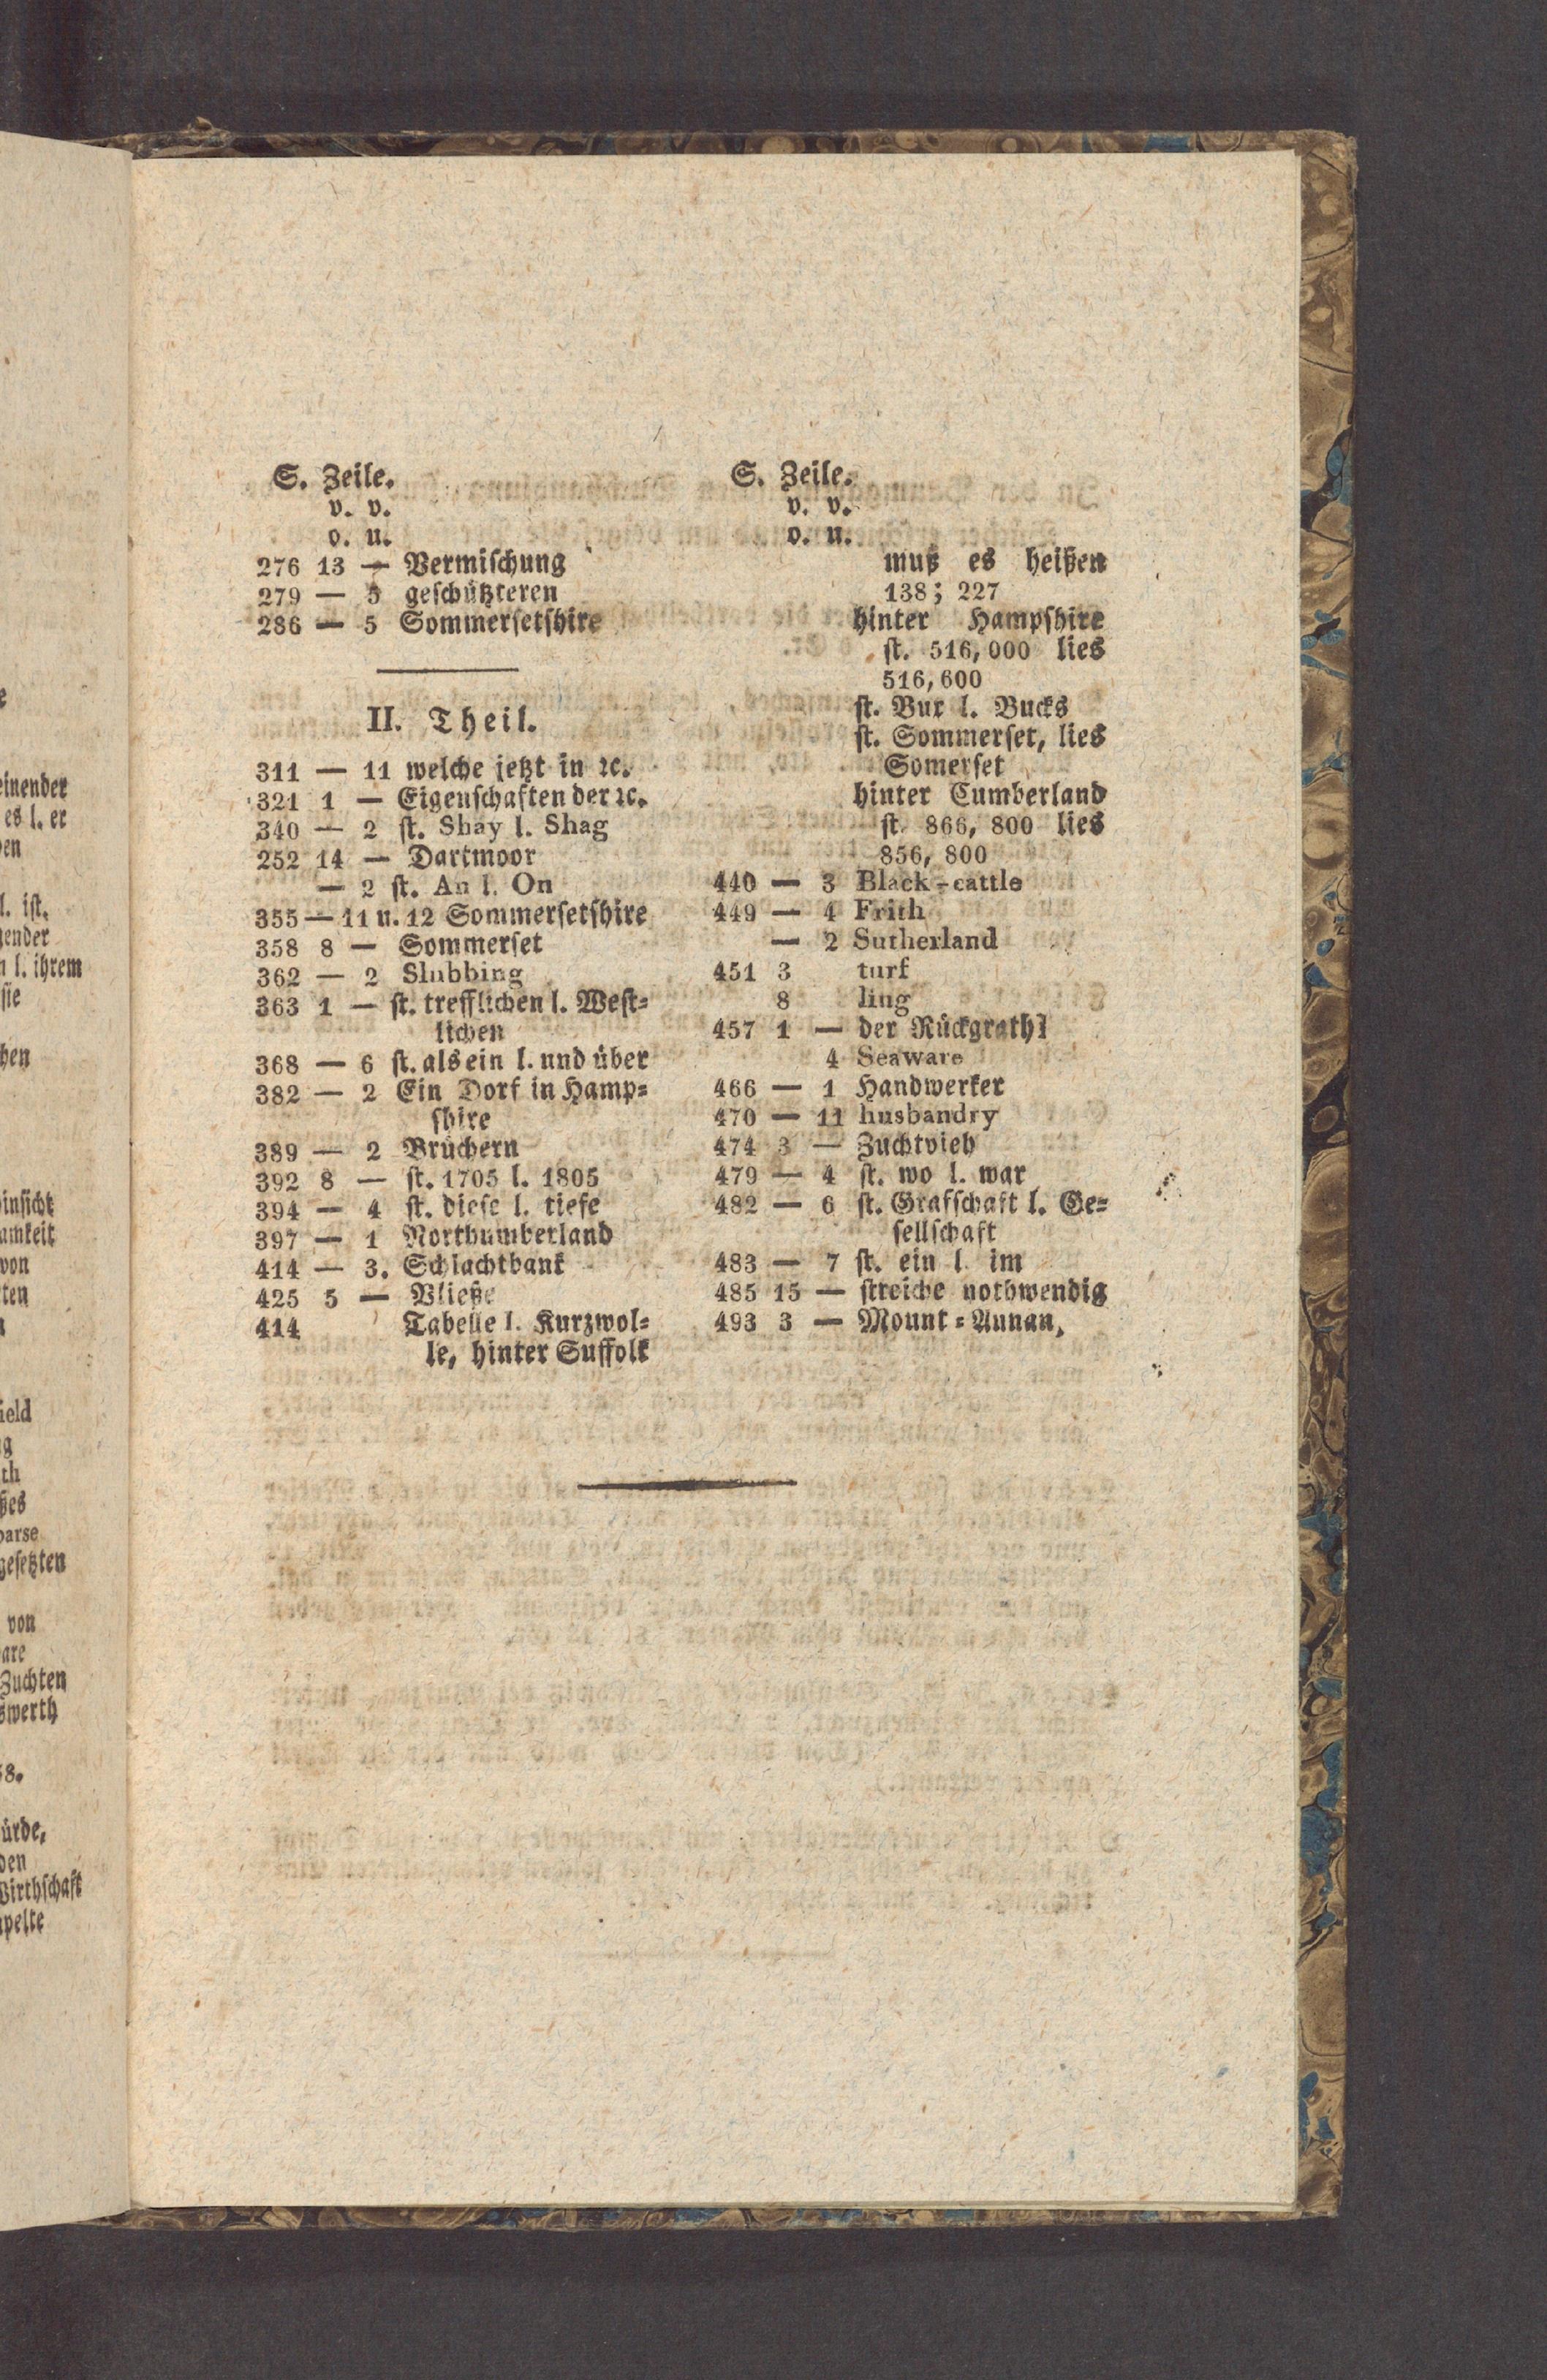 S. Zeile.
v. v.
o. u.
276 13 — Vermiſchung
279 — 5 geſchützteren
286 — 5 Sommerſetſhire
II. Theil.
311 — 11 welche jetzt in ꝛc.
321 1 — Eigenſchaften der ꝛc.
340 — 2 ſt. Shay l. Shag
252 14 — Dartmoor
— 2 ſt. An l. On
355 — 11 u. 12 Sommerſetſhire
358 8 — Sommerſet
362 — 2 Slubbing
363 1 — ſt. trefflichen l. Weſt-
lichen
368 — 6 ſt. als ein l. und über
382 — 2 Ein Dorf in Hamp-
ſhire
389 — 2 Brüchern
392 8 — ſt. 1705 l. 1805
394 — 4 ſt. dieſe l. tiefe
397 — 1 Northumberland
414 — 3. Schlachtbank
425 5 — Vließe
414 Tabelle l. Kurzwol-
le, hinter Suffolk
S. Zeile.
v. v.
o. u.
muß es heißen
138; 227
hinter Hampſhire
ſt. 516,000 lies
516,600
ſt. Bux l. Bucks
ſt. Sommerſet, lies
Somerſet
hinter Cumberland
ſt. 866, 800 lies
856, 800
440 — 3 Black-cattle
449 — 4 Frith
— 2 Sutherland
451 3 turf
8 ling
457 1 — der Rückgrath
4 Seaware
466 — 1 Handwerker
470 — 11 husbandry
474 3 — Zuchtvieh
479 — 4 ſt. wo l. war
482 — 6 ſt. Grafſchaft l. Ge-
ſellſchaft
483 — 7 ſt. ein l im
485 15 — ſtreiche nothwendig
493 3 — Mount-Annan,
einender
es l. er
l. iſt.
l. ihrem
ſie
von
ßes
geſetzten
von
Zuchten